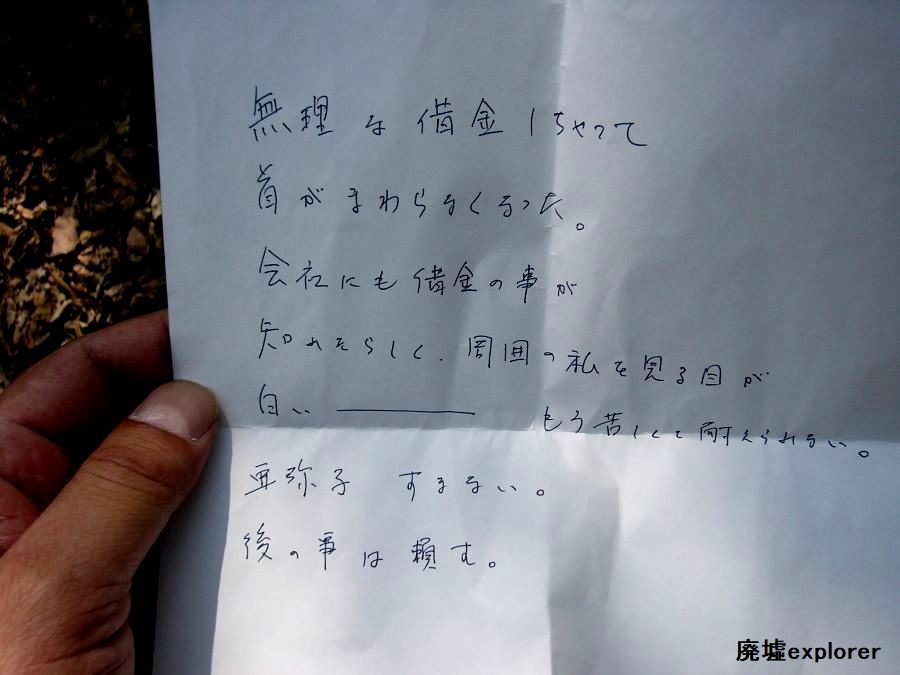 無理な借金しちゃって
首がまわらなくなった。
会社にも借金の事が
知れたらしく、周囲の私を見る目が
白い――――― もう苦しくて耐えられない。
亜弥子 すまない。
後の事は頼む。
廃墟explorer